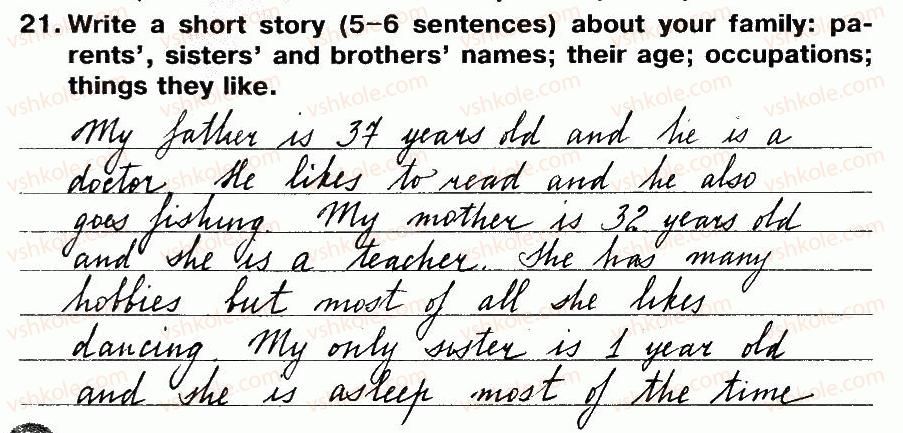 21. Write a short story (5–6 sentences) about your family: pa-
rents', sisters' and brothers' names; their age; occupations;
things they like.
My father is 37 years old and he is a
doctor. He likes to read and he also
goes fishing. My mother is 32 years old
and she is a teacher. She has many
hobbies but most of all she likes
dancing. My only sister is 1 year old
and she is asleep most of the time